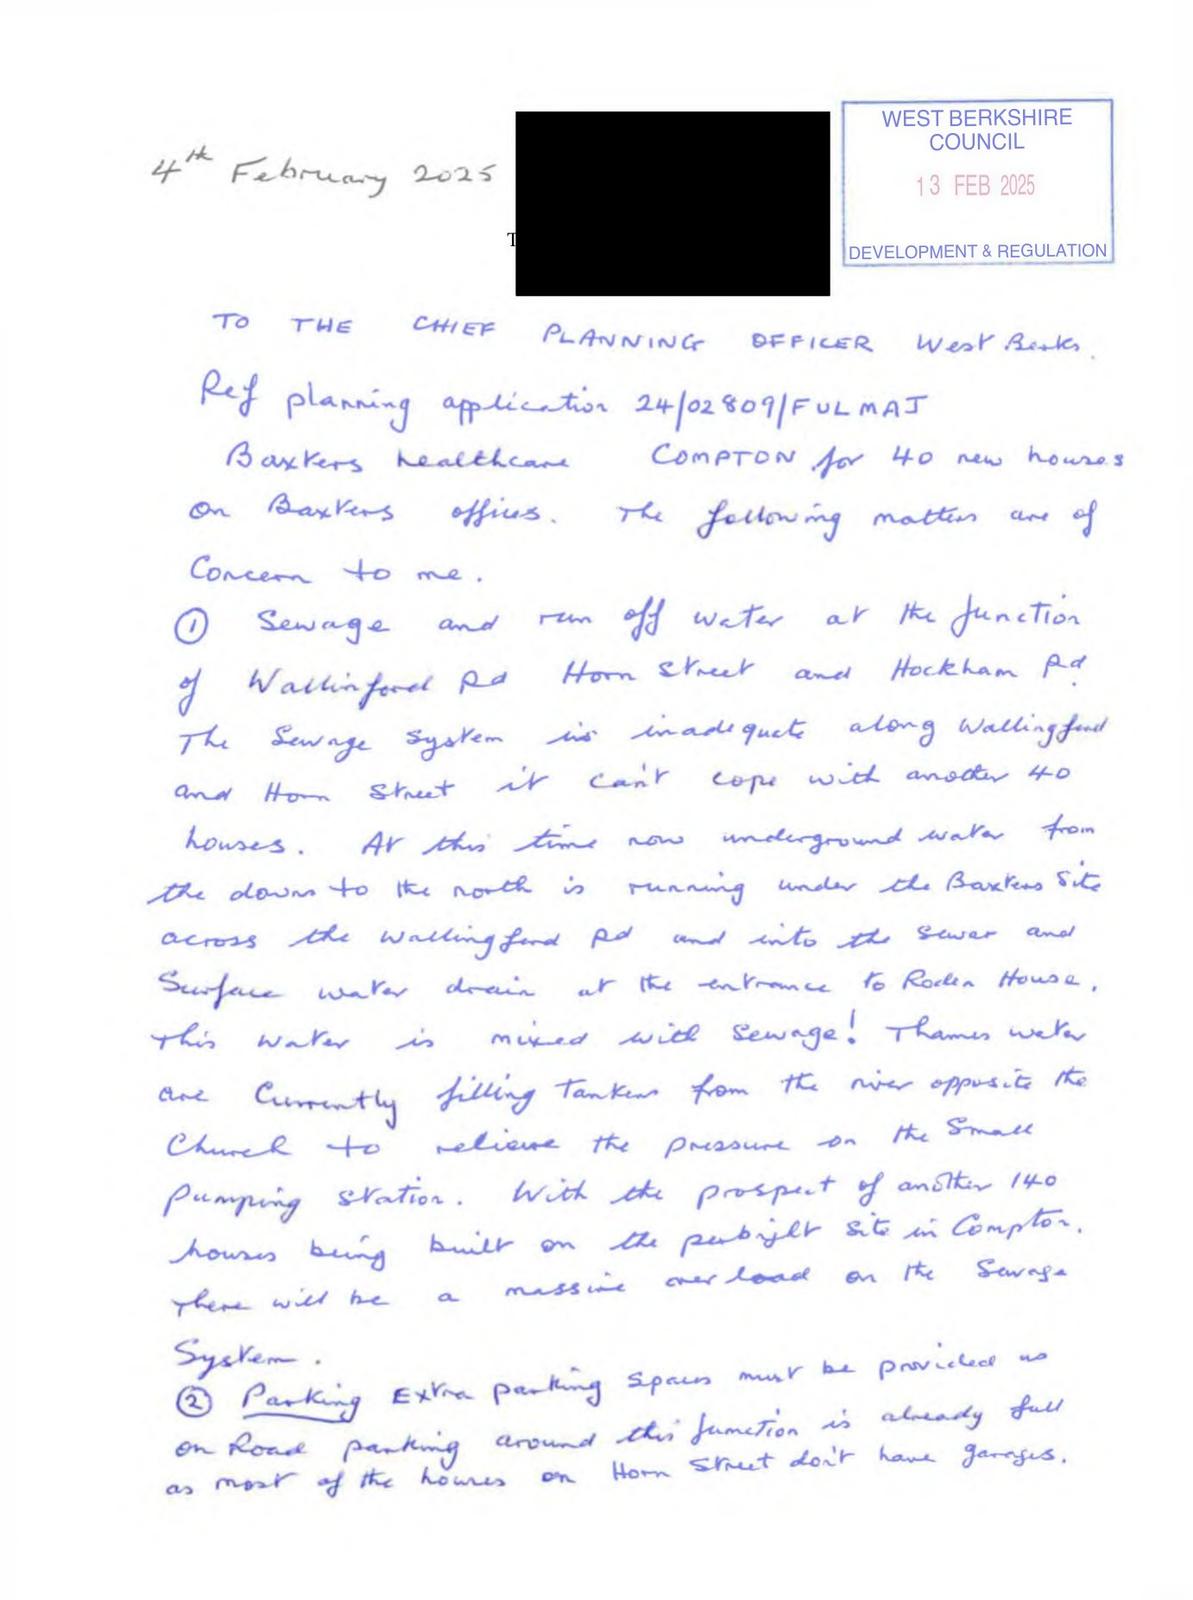 WEST BERKSHIRE
COUNCIL
13 FEB 2025
DEVELOPMENT & REGULATION
4th February 2025
T
TO THE CHIEF PLANNING OFFICER West Berks.
Ref planning application 24/02809/FULMAJ
Baxters healthcare COMPTON for 40 new houses
on Baxters offices. The following matters are of
Concern to me.
① Sewage and run off water at the junction
of Wallinford Rd Horn Street and Hockham Rd.
The Sewage System is inadequate along Wallingford
and Horn Street it can't cope with another 40
houses. At this time now underground water from
the downs to the north is running under the Baxters Site
across the Wallingford Rd and into the Sewer and
Surface water drain at the entrance to Roden House.
This water is mixed with Sewage! Thames water
are Currently filling Tankers from the river opposite the
Church to relieve the pressure on the Small
Pumping Station. With the prospect of another 140
houses being built on the perbright Site in Compton.
There will be a massive over load on the Sewage
System.
② Parking Extra parking Spaces must be provided as
on Road parking around this junction is already full
as most of the houses on Horn Street don't have garages.